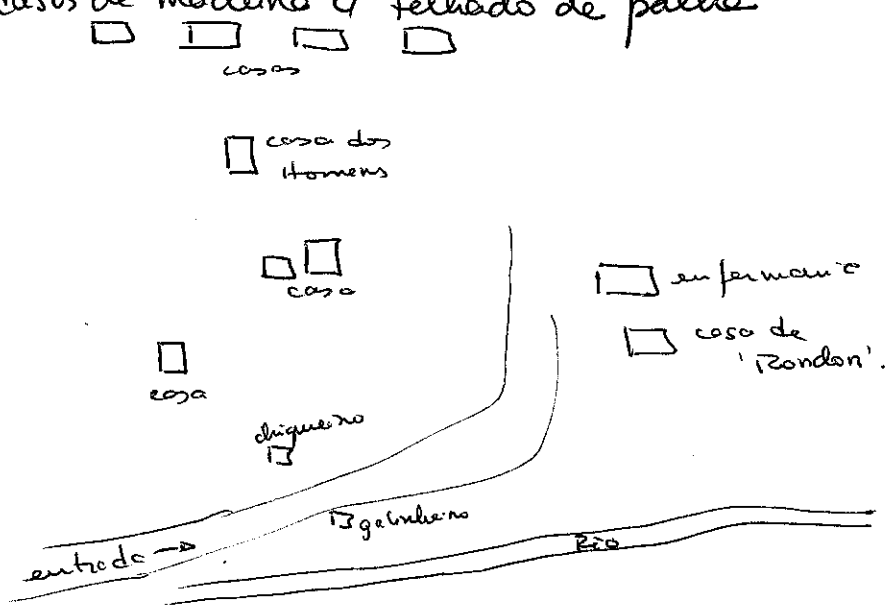 casas de madeira c/ telhado de palha
casas
casa dos
Homens
casa
enfermaria
casa de
'Rondon'.
casa
chiqueiro
galinheiro
Rio
entrada